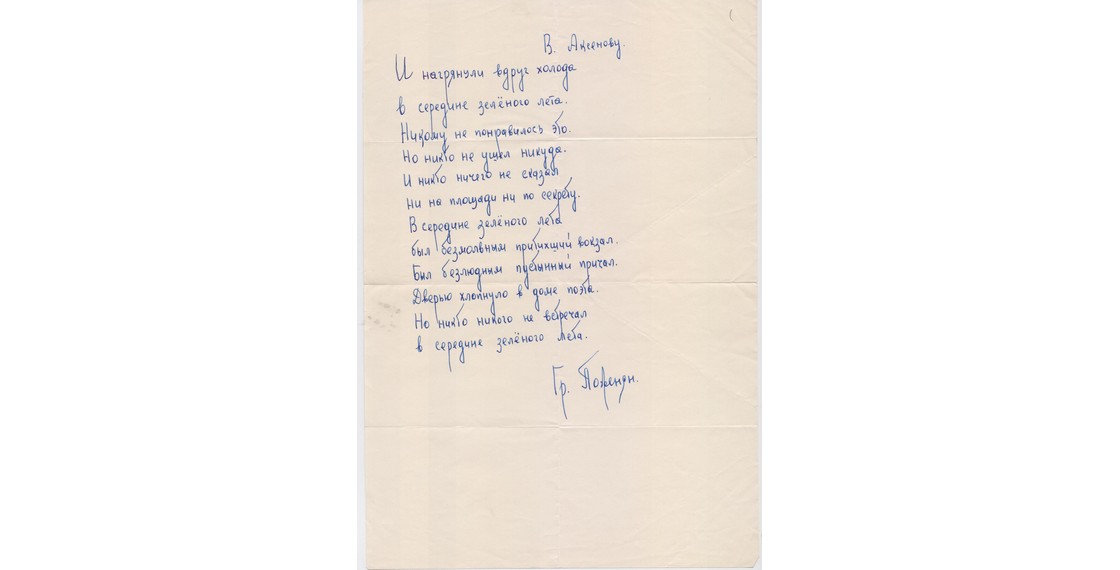 В. Аксенову.
И нагрянули вдруг холода
в середине зелёного лета.
Никому не понравилось это.
Но никто не ушёл никуда.
И никто ничего не сказал
ни на площади ни по секрету.
В середине зелёного лета
был безмолвным притихший вокзал.
Был безлюдным пустынный причал.
Дверью хлопнуло в доме поэта.
Но никто никого не встречал
в середине зелёного лета.
Гр. Поженян.